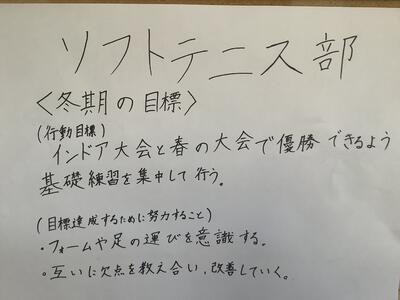 ソフトテニス部
〈冬期の目標〉
(行動目標)
インドア大会と春の大会で優勝できるよう
基礎練習を集中して行う。
(目標達成するために努力すること)
・フォームや足の運びを意識する。
・互いに欠点を教え合い、改善していく。